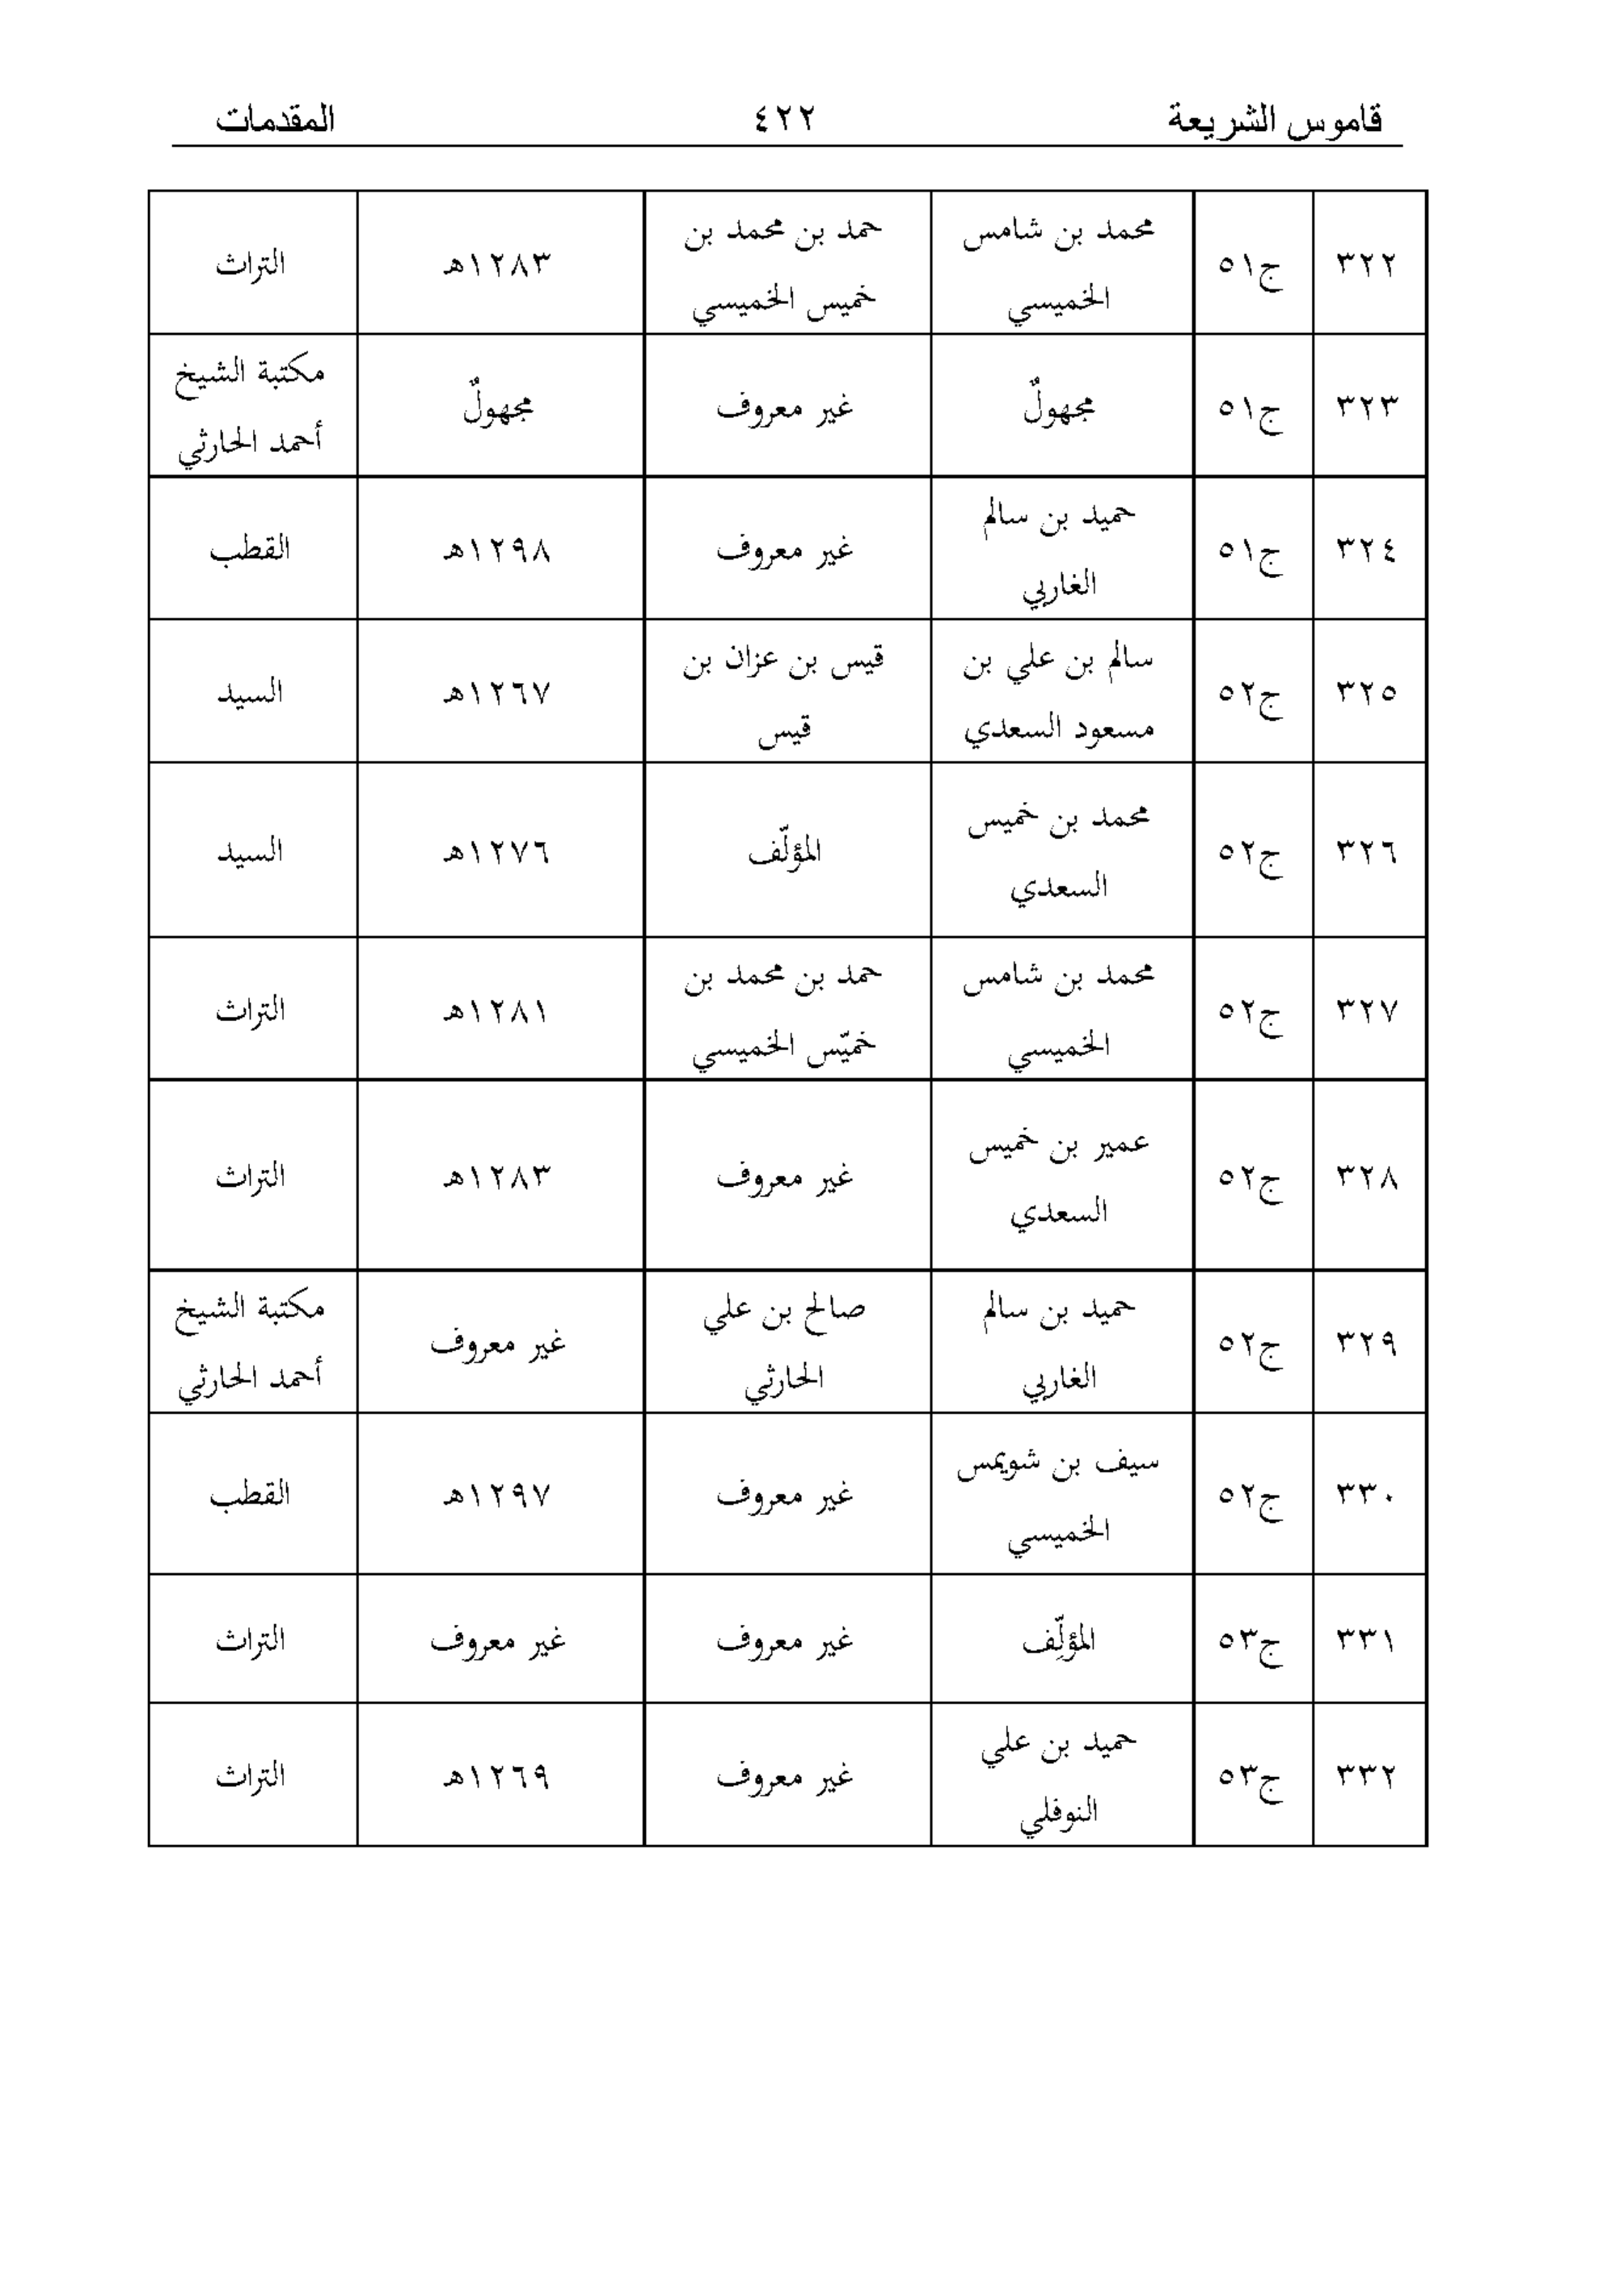 قاموس الشريعة ٤٢٢ المقدمات
٣٢٢ ج٥١ محمد بن شامس الخميسي حمد بن محمد بن خميس الخميسي ١٢٨٣هـ التراث
٣٢٣ ج٥١ مجهولٌ غير معروف مجهولٌ مكتبة الشيخ أحمد الحارثي
٣٢٤ ج٥١ حميد بن سالم الغاربي غير معروف ١٢٩٨هـ القطب
٣٢٥ ج٥٢ سالم بن علي بن مسعود السعدي قيس بن عزان بن قيس ١٢٦٧هـ السيد
٣٢٦ ج٥٢ محمد بن خميس السعدي المؤلّف ١٢٧٦هـ السيد
٣٢٧ ج٥٢ محمد بن شامس الخميسي حمد بن محمد بن خميّس الخميسي ١٢٨١هـ التراث
٣٢٨ ج٥٢ عمير بن خميس السعدي غير معروف ١٢٨٣هـ التراث
٣٢٩ ج٥٢ حميد بن سالم الغاربي صالح بن علي الحارثي غير معروف مكتبة الشيخ أحمد الحارثي
٣٣٠ ج٥٢ سيف بن شويمس الخميسي غير معروف ١٢٩٧هـ القطب
٣٣١ ج٥٣ المؤلِّف غير معروف غير معروف التراث
٣٣٢ ج٥٣ حميد بن علي النوفلي غير معروف ١٢٦٩هـ التراث